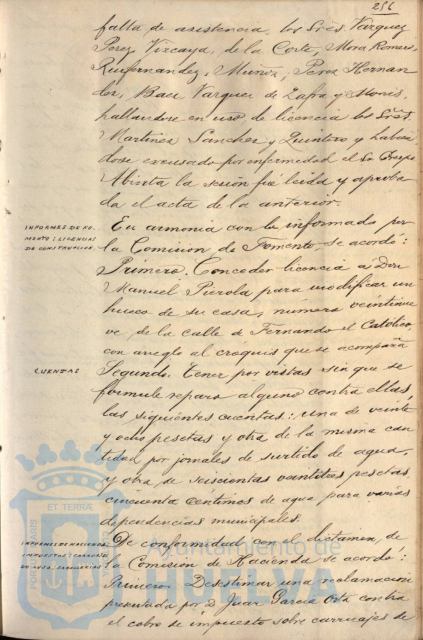 256
falta de asistencia, los Sres. Vazquez
Perez, Vizcaya, de la Corte, Mora Romero,
Ruifernandez, Muñoz, Perez Hernan
dez, Baez Vazquez de Zafra y Mones,
hallandose en uso de licencia los Sres.
Martinez Sanchez y Quintero y habien
dose excusado por enfermedad el Sr. Crespo
Abierta la sesión fué leida y aproba
da el acta de la anterior.
INFORMES DE FO
MENTO: LICENCIAS
DE CONSTRUCCION.
En armonia con lo informado por
la Comision de Fomento, se acordó:
Primero. Conceder licencia á Don
Manuel Pierola para modificar un
hueco de su casa, número veintinue
ve de la calle de Fernando el Católico,
con arreglo al croquis que se acompaña
CUENTAS
Segundo. Tener por vistas sin que se
formule reparo alguno contra ellas,
las siguientes cuentas: una de veinte
y ocho pesetas y otra de la misma can
tidad por jornales de surtido de agua,
y otra de seiscientas veintitres pesetas,
cincuenta centimos de agua para varias
dependencias municipales.
INFORMES DE HACIENDA
IMPUESTOS: CARRUAJES
De conformidad con el dictamen de
la Comision de Hacienda se acordó:
Primero. Desestimar una reclamacion
presentada por D. Juan Garcia Orta contra
el cobro de impuesto sobre carruajes de
ET TERRÆ
Ayuntamiento de
HUELVA